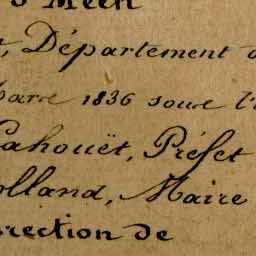 Meen
, Département d
bare 1836 sous l'a
Cahouët, Préfet
olland, Maire
rection de